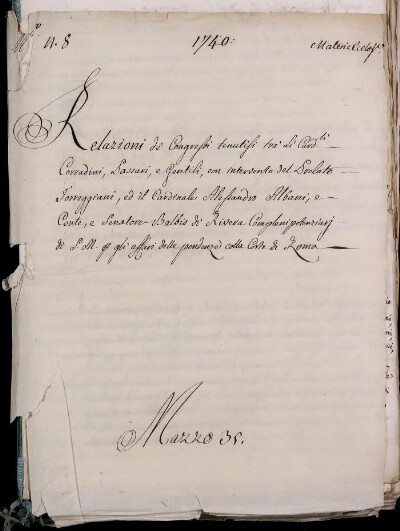 n. 8 1740: Materie Eccles.
Relazioni de Congressi tenutisi trà li Card.li
Corradini, Passari, e Gentili, con intervento del Prelato
Torreggiani, ed il Cardinale Alessandro Albani, e
Conte, e Senatore Balbis di Rivera Complenipotenziarj
di S. M. p gli affari delle pendenze colla Corte di Roma
Mazzo 35.